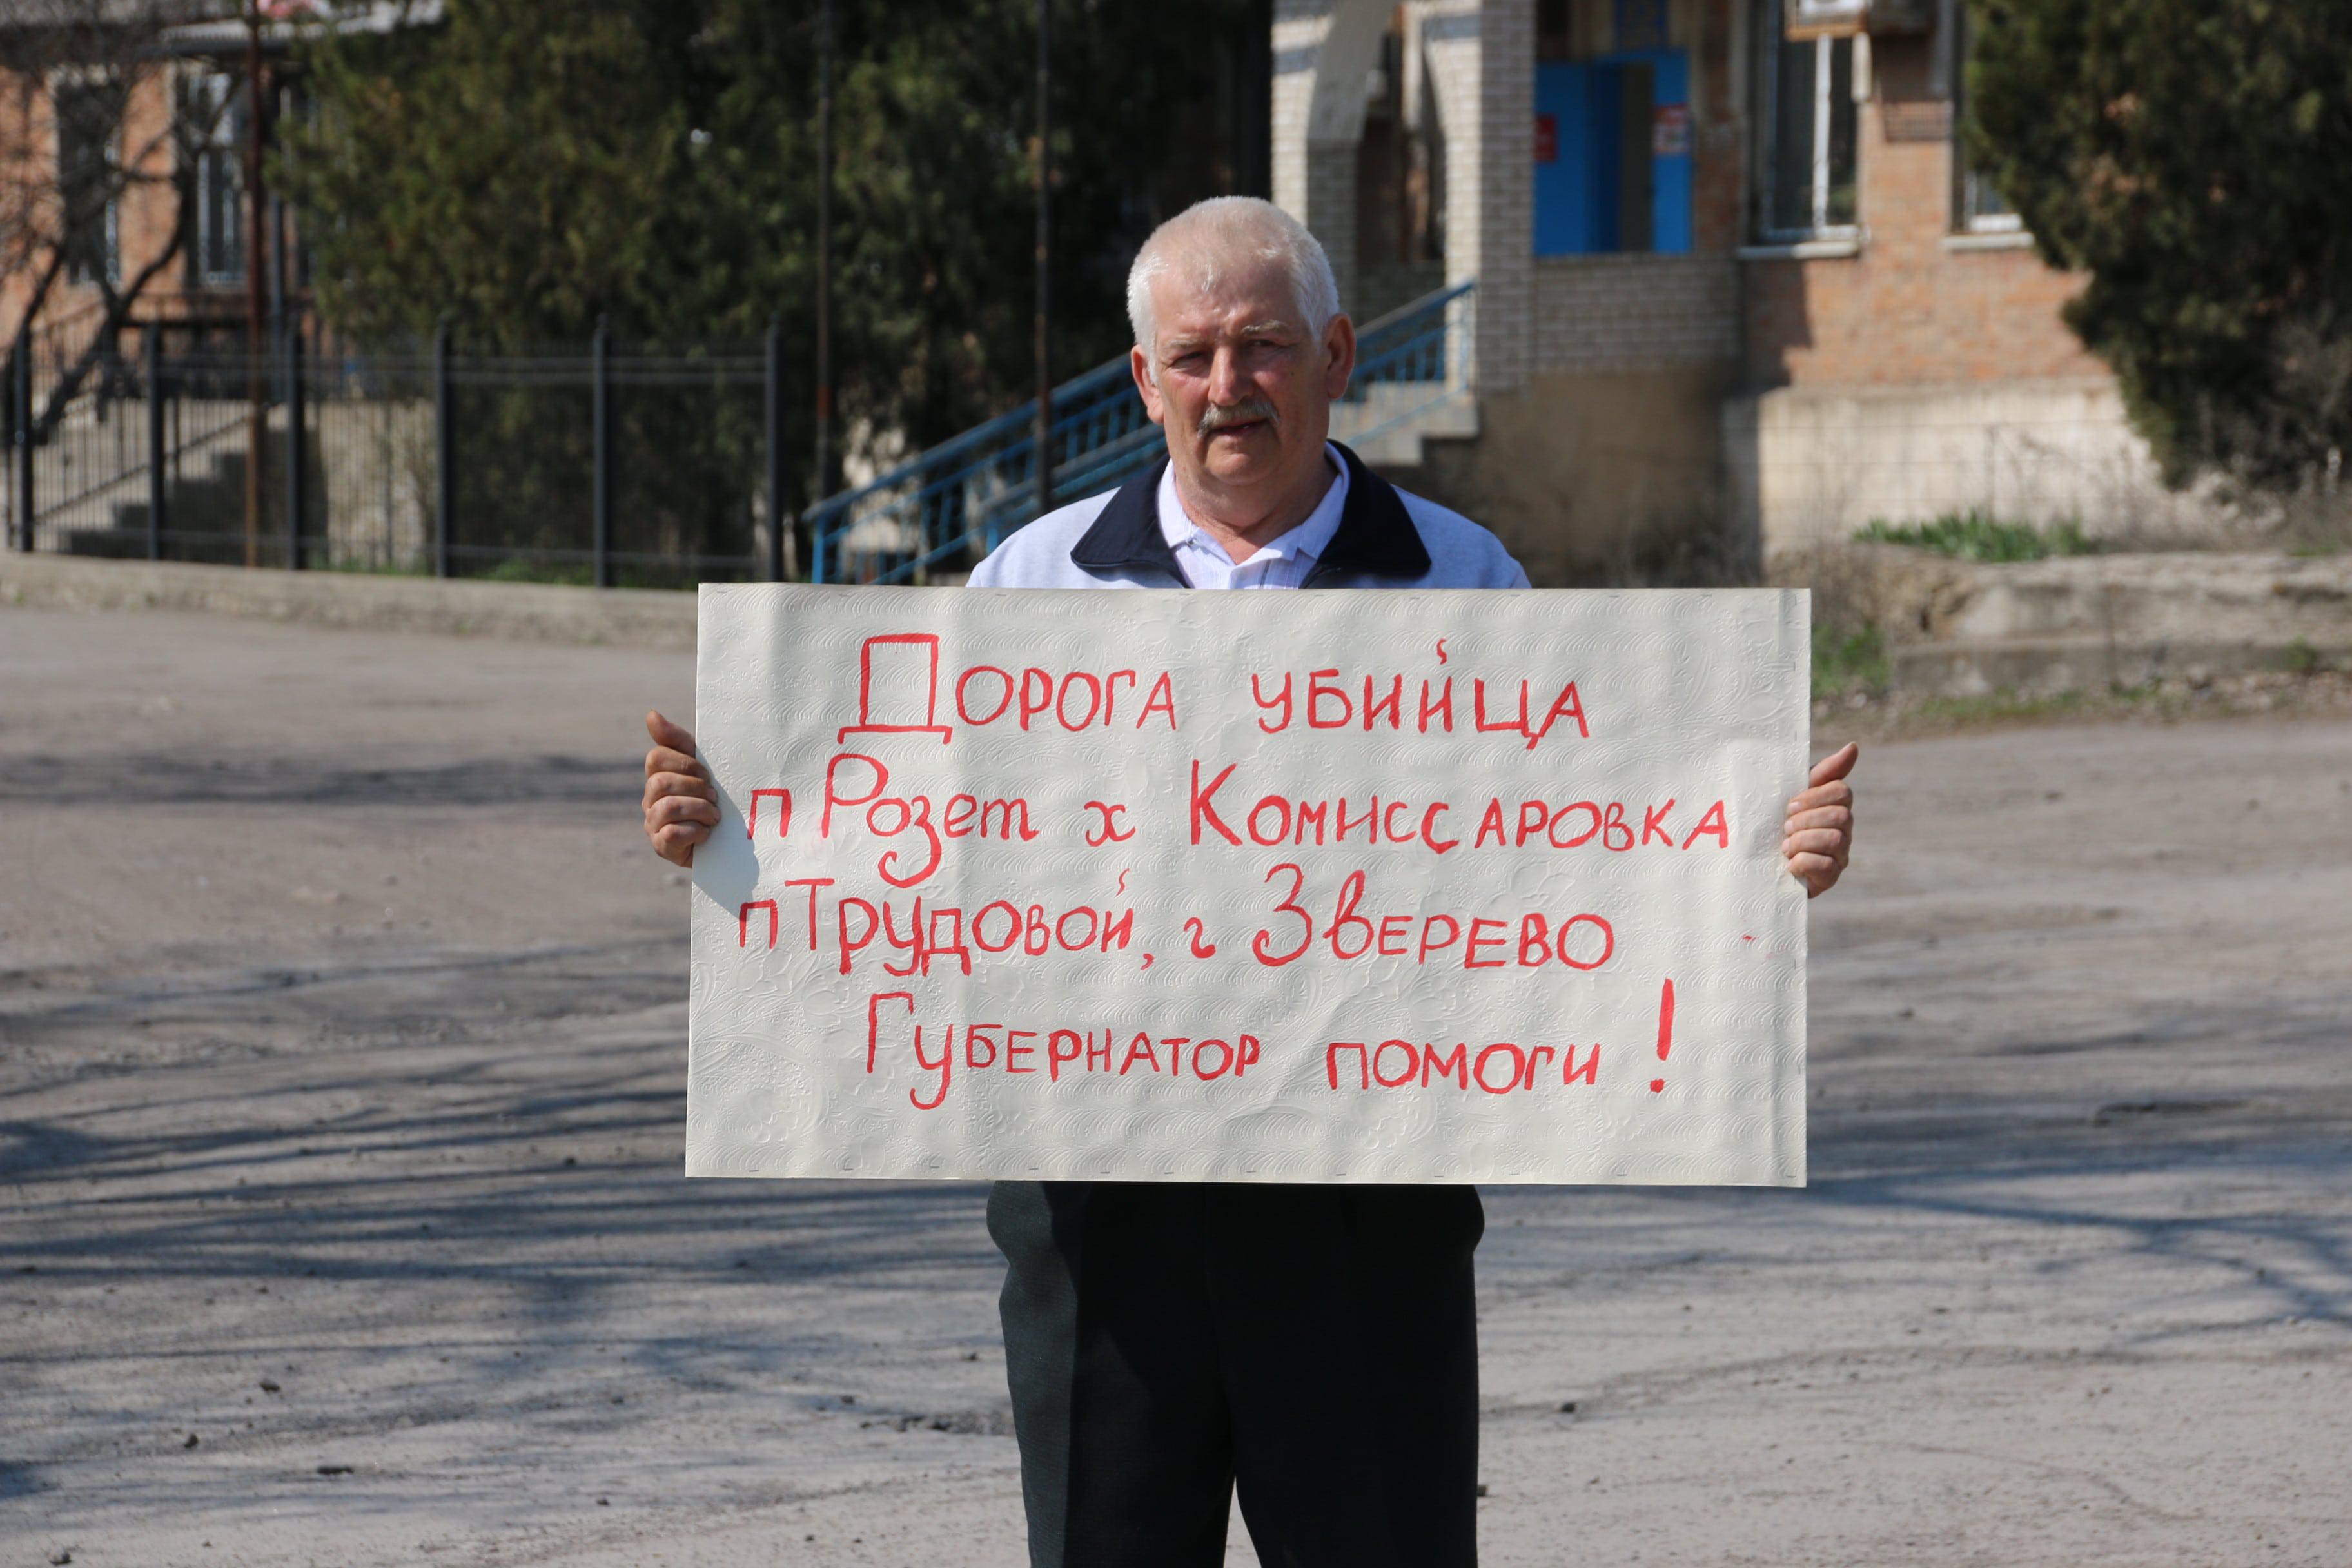 Дорога убийца
п Розет х Комиссаровка
п Трудовой, г Зверево
Губернатор помоги!